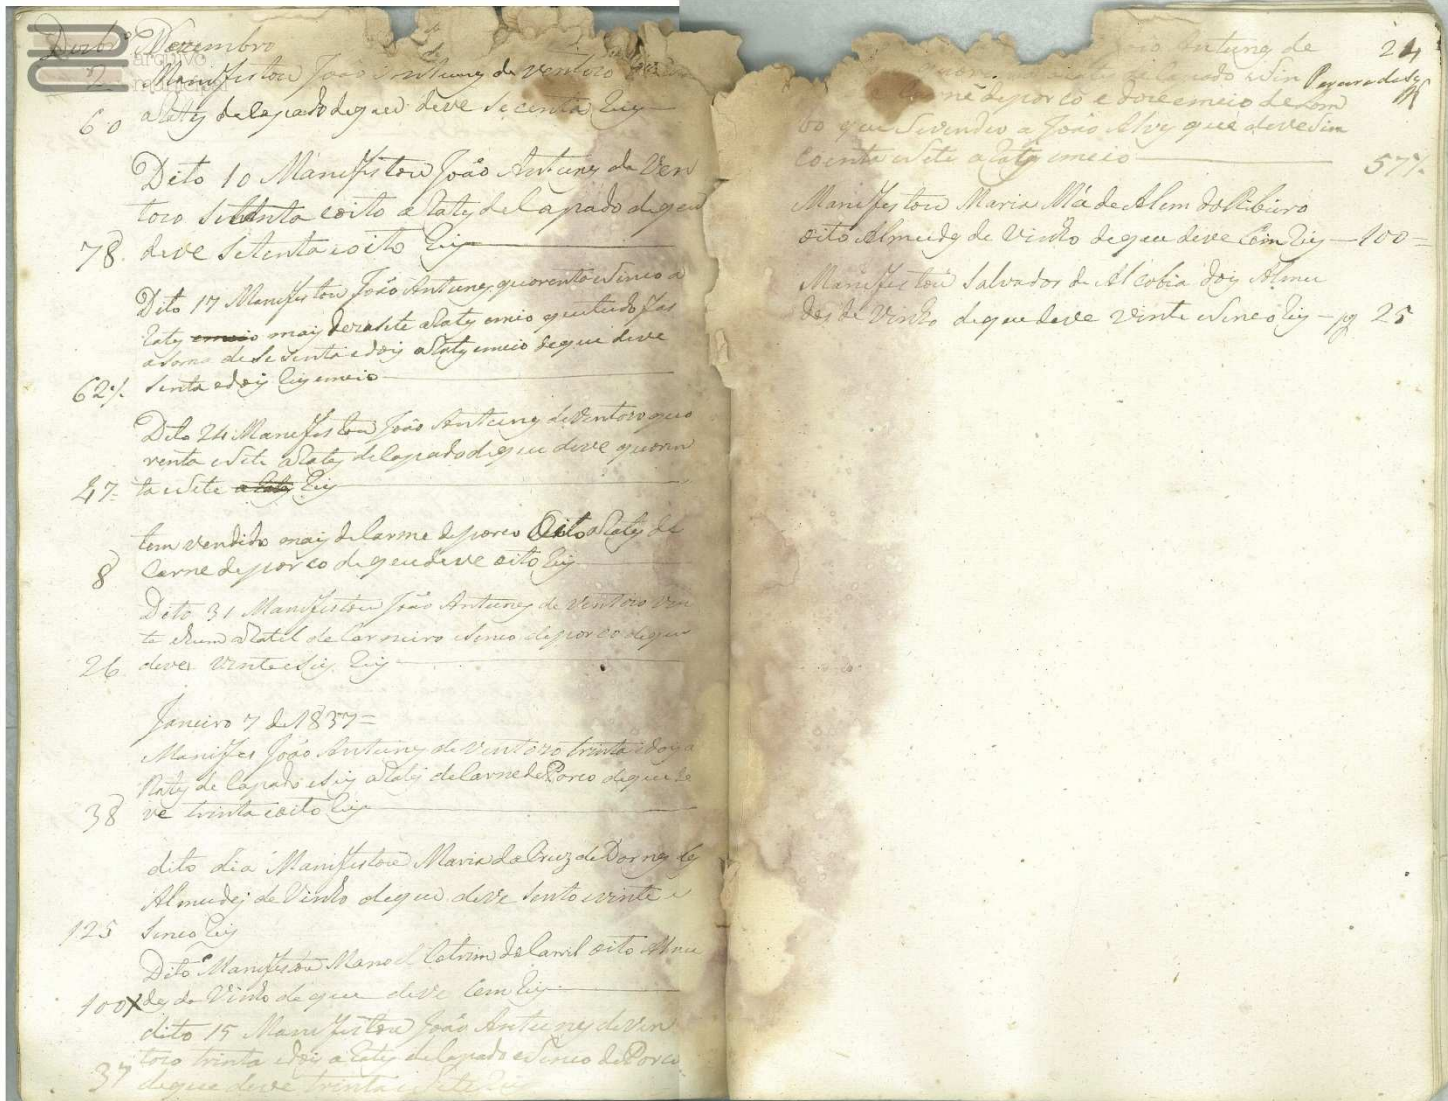 Dezbro Dezembro
2 Manifestou João Antunes de ventozo
60 aRates de Capado de que deve Secenta Reis
Dito 10 Manifestou João Antunes de Ven
tozo Setenta eoito aRates de Capado de que
78 deve Setenta eoito Reis
Dito 17 Manifestou João Antunes quorenta eSinco a
Rates emeio mais dezasete aRates emeio que tudo fas
asoma de Sesenta edois aRates emeio de que deve
62½ Senta edois Reis emeio
Dito 24 Manifestou João Antunes de Ventozo quo
renta eSete aRates de Capado de que deve quoren
47 ta eSete aRates Reis
tem vendido mais de Carne de porco Oito aRates de
8 Carne de porco de que deve oito Reis
Dito 31 Manifestou João Antunes de Ventozo Vin
te ehum aRatel de Carneiro eSinco de porco de que
26 deve Vinte eSeis Reis
Janeiro 7 de 1837=
Manifes João Antunes de Ventozo trinta edois a
Rates de Capado eSeis aRates de Carne de Porco de que de
38 ve trinta eoito Reis
dito dia Manifestou Maria da Cruz de Dornes des
Almudes de Vinho de que deve Sento evinte e
125 Sinco Reis
Dito Manifestou Manoel Cotrim do Carril oito Almu
100 X des de Vinho de que deve Cem Reis
dito 15 Manifestou João Antunes de Ven
tozo trinta edois aRates de Capado eSinco de Porco
37 de que deve trinta eSete Reis
archivo
municipal
24
Antunes de
Capado eSin
Carne de porco e doze emeio de Lom
bo que Sevendeo a João Alves que deve Sin
coenta eSete aRates emeio 57½
Manifestou Maria Má de Alem do Ribeiro
oito Almudes de Vinho de que deve Cem Reis 100=
Manifestou Salvador de Alcobia dois Almu
des de Vinho de que deve vinte eSinco Reis pg 25